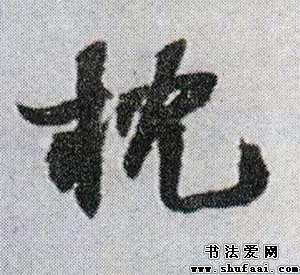 枕
书法爱网
www.shufaai.com